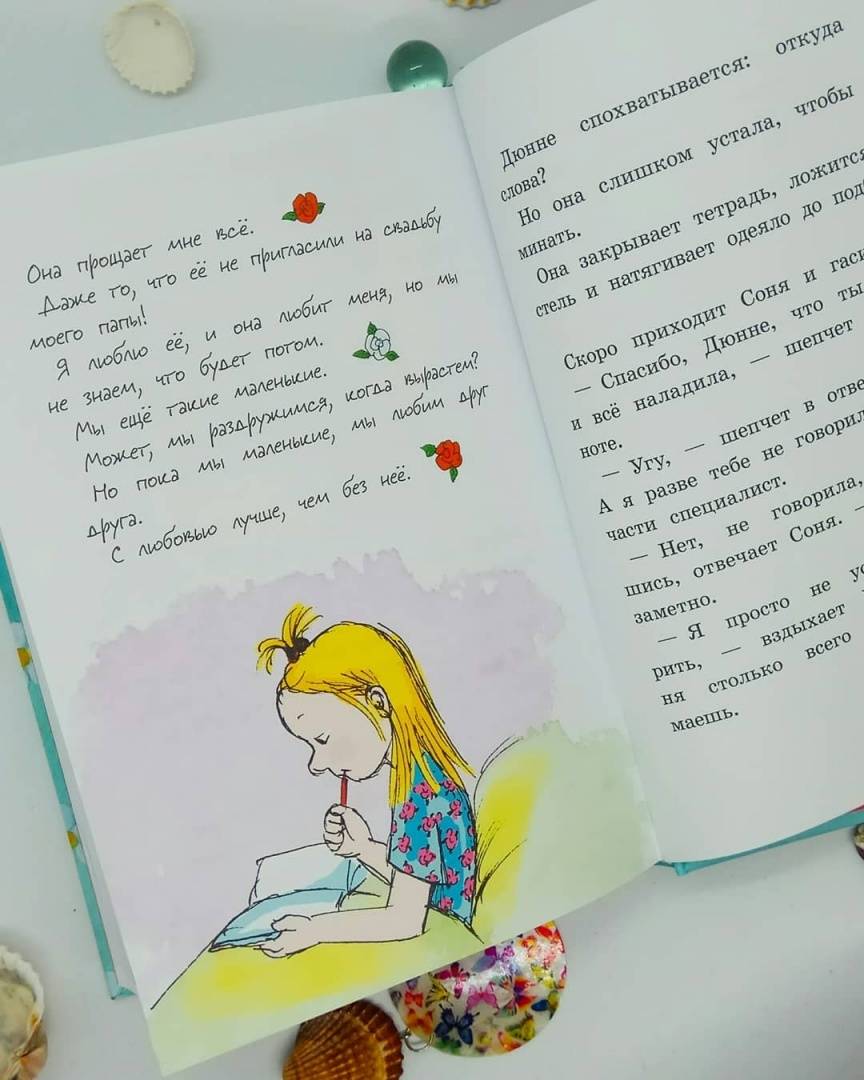 Она прощает мне всё.
Даже то, что её не пригласили на свадьбу
моего папы!
Я люблю её, и она любит меня, но мы
не знаем, что будет потом.
Мы ещё такие маленькие.
Может, мы раздружимся, когда вырастем?
Но пока мы маленькие, мы любим друг
друга.
С любовью лучше, чем без неё.
Дюнне спохватывается: откуда
слова?
Но она слишком устала, чтобы
минать.
Она закрывает тетрадь, ложится
стель и натягивает одеяло до под
Скоро приходит Соня и гаси
— Спасибо, Дюнне, что ты
и всё наладила, — шепчет
ноте.
— Угу, — шепчет в отве
А я разве тебе не говорил
части специалист.
— Нет, не говорила,
шись, отвечает Соня. —
заметно.
— Я просто не ус
рить, — вздыхает
ня столько всего
маешь.